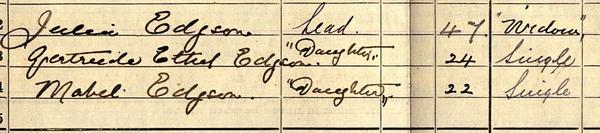 Julia Edgson Head. 47. "Widow"
3 Gertrude Ethel Edgson. "Daughter" 24 Single
4 Mabel Edgson. "Daughter" 22 Single
5